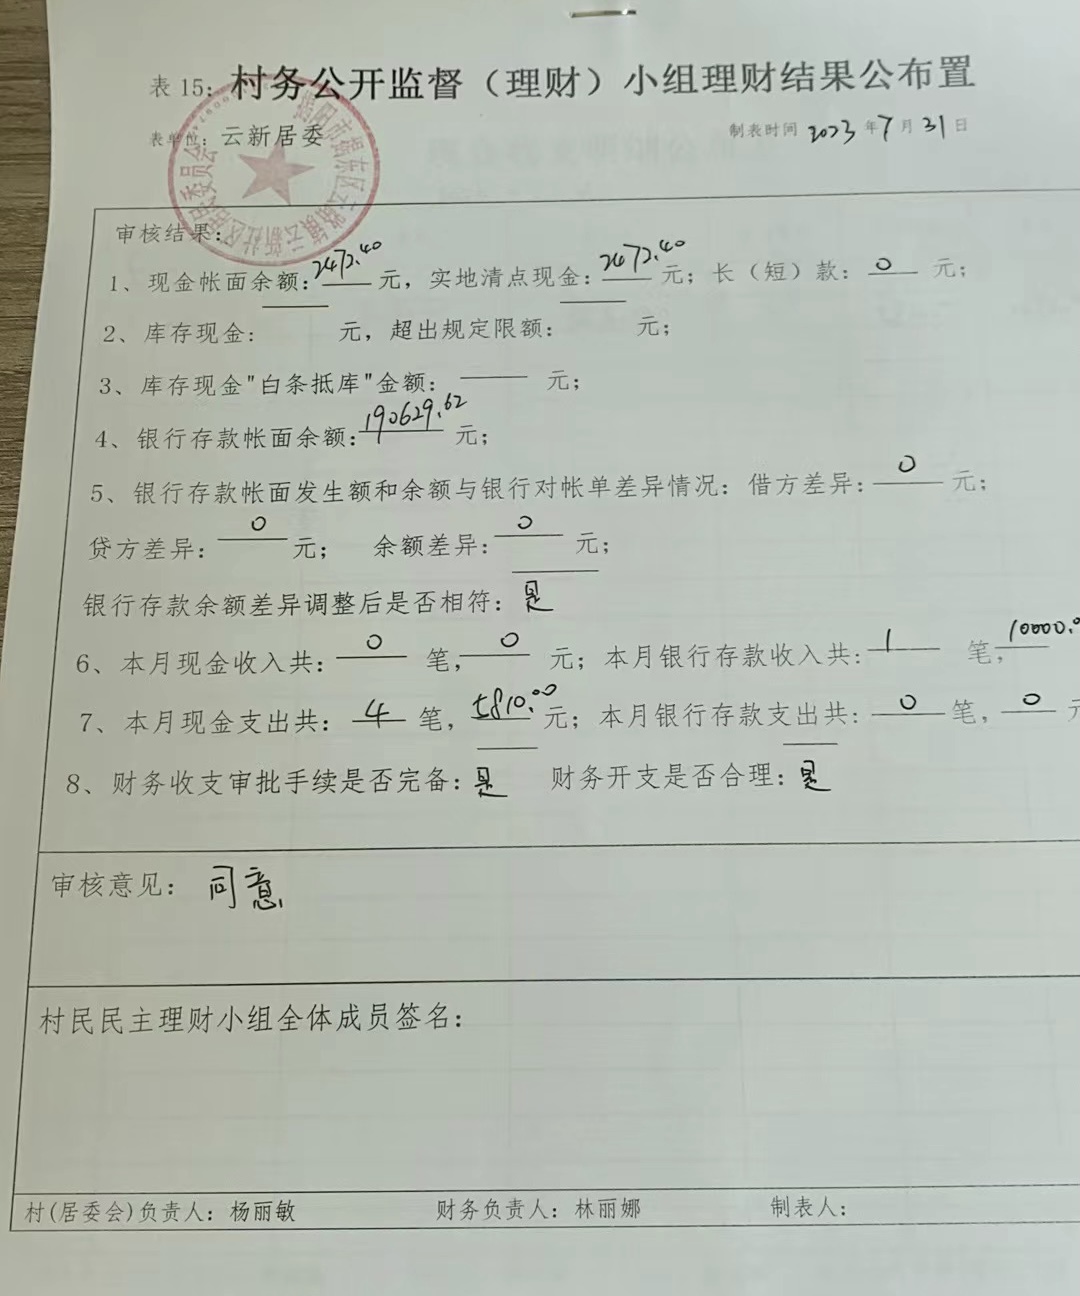 表 15: 村务公开监督（理财）小组理财结果公布置
表单位: 云新居委 制表时间 2023 年 7 月 31 日
揭阳市揭东区云路镇云新社区居民委员会
审核结果:
1、现金帐面余额: 2472.40 元，实地清点现金: 2472.40 元; 长（短）款: 0 元;
2、库存现金: 元，超出规定限额: 元;
3、库存现金"白条抵库"金额: 元;
4、银行存款帐面余额: 190629.62 元;
5、银行存款帐面发生额和余额与银行对帐单差异情况: 借方差异: 0 元;
贷方差异: 0 元; 余额差异: 0 元;
银行存款余额差异调整后是否相符: 是
6、本月现金收入共: 0 笔, 0 元; 本月银行存款收入共: 1 笔, 10000.0
7、本月现金支出共: 4 笔, 5810.00 元; 本月银行存款支出共: 0 笔, 0 元
8、财务收支审批手续是否完备: 是 财务开支是否合理: 是
审核意见: 同意
村民民主理财小组全体成员签名:
村(居委会)负责人: 杨丽敏 财务负责人: 林丽娜 制表人: